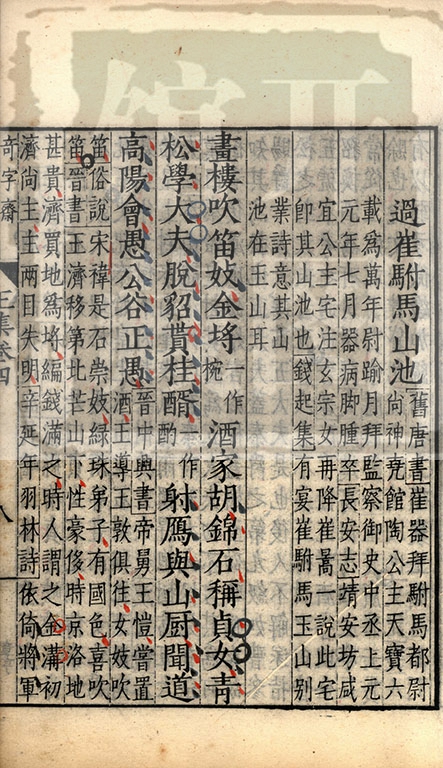 過崔駙馬山池
舊唐書崔器拜駙馬都尉
尚神堯館陶公主天寶六
載爲萬年尉踰月拜監察御史中丞上元
元年七月器病脚腫卒長安志靖安坊咸
宜公主宅注玄宗女再降崔嵩一說此宅
卽其山池也錢起集有宴崔駙馬玉山別
業詩意其山
池在玉山耳
畫樓吹笛妓金埓一作椀酒家胡錦石稱貞女青
松學大夫脫貂貰桂醑一作酌射鴈與山厨聞道
高陽會愚公谷正愚
晉中興書帝舅王愷嘗置
酒王導王敦俱往女妓吹
笛俗說宋褘是石崇妓綠珠弟子有國色喜吹
笛晉書王濟移第北芒山下性豪侈時京洛地
甚貴濟買地爲埓編錢滿之時人謂之金溝初
濟尚主主兩目失明辛延年羽林詩依倚將軍
奇字齋
王集卷四
八